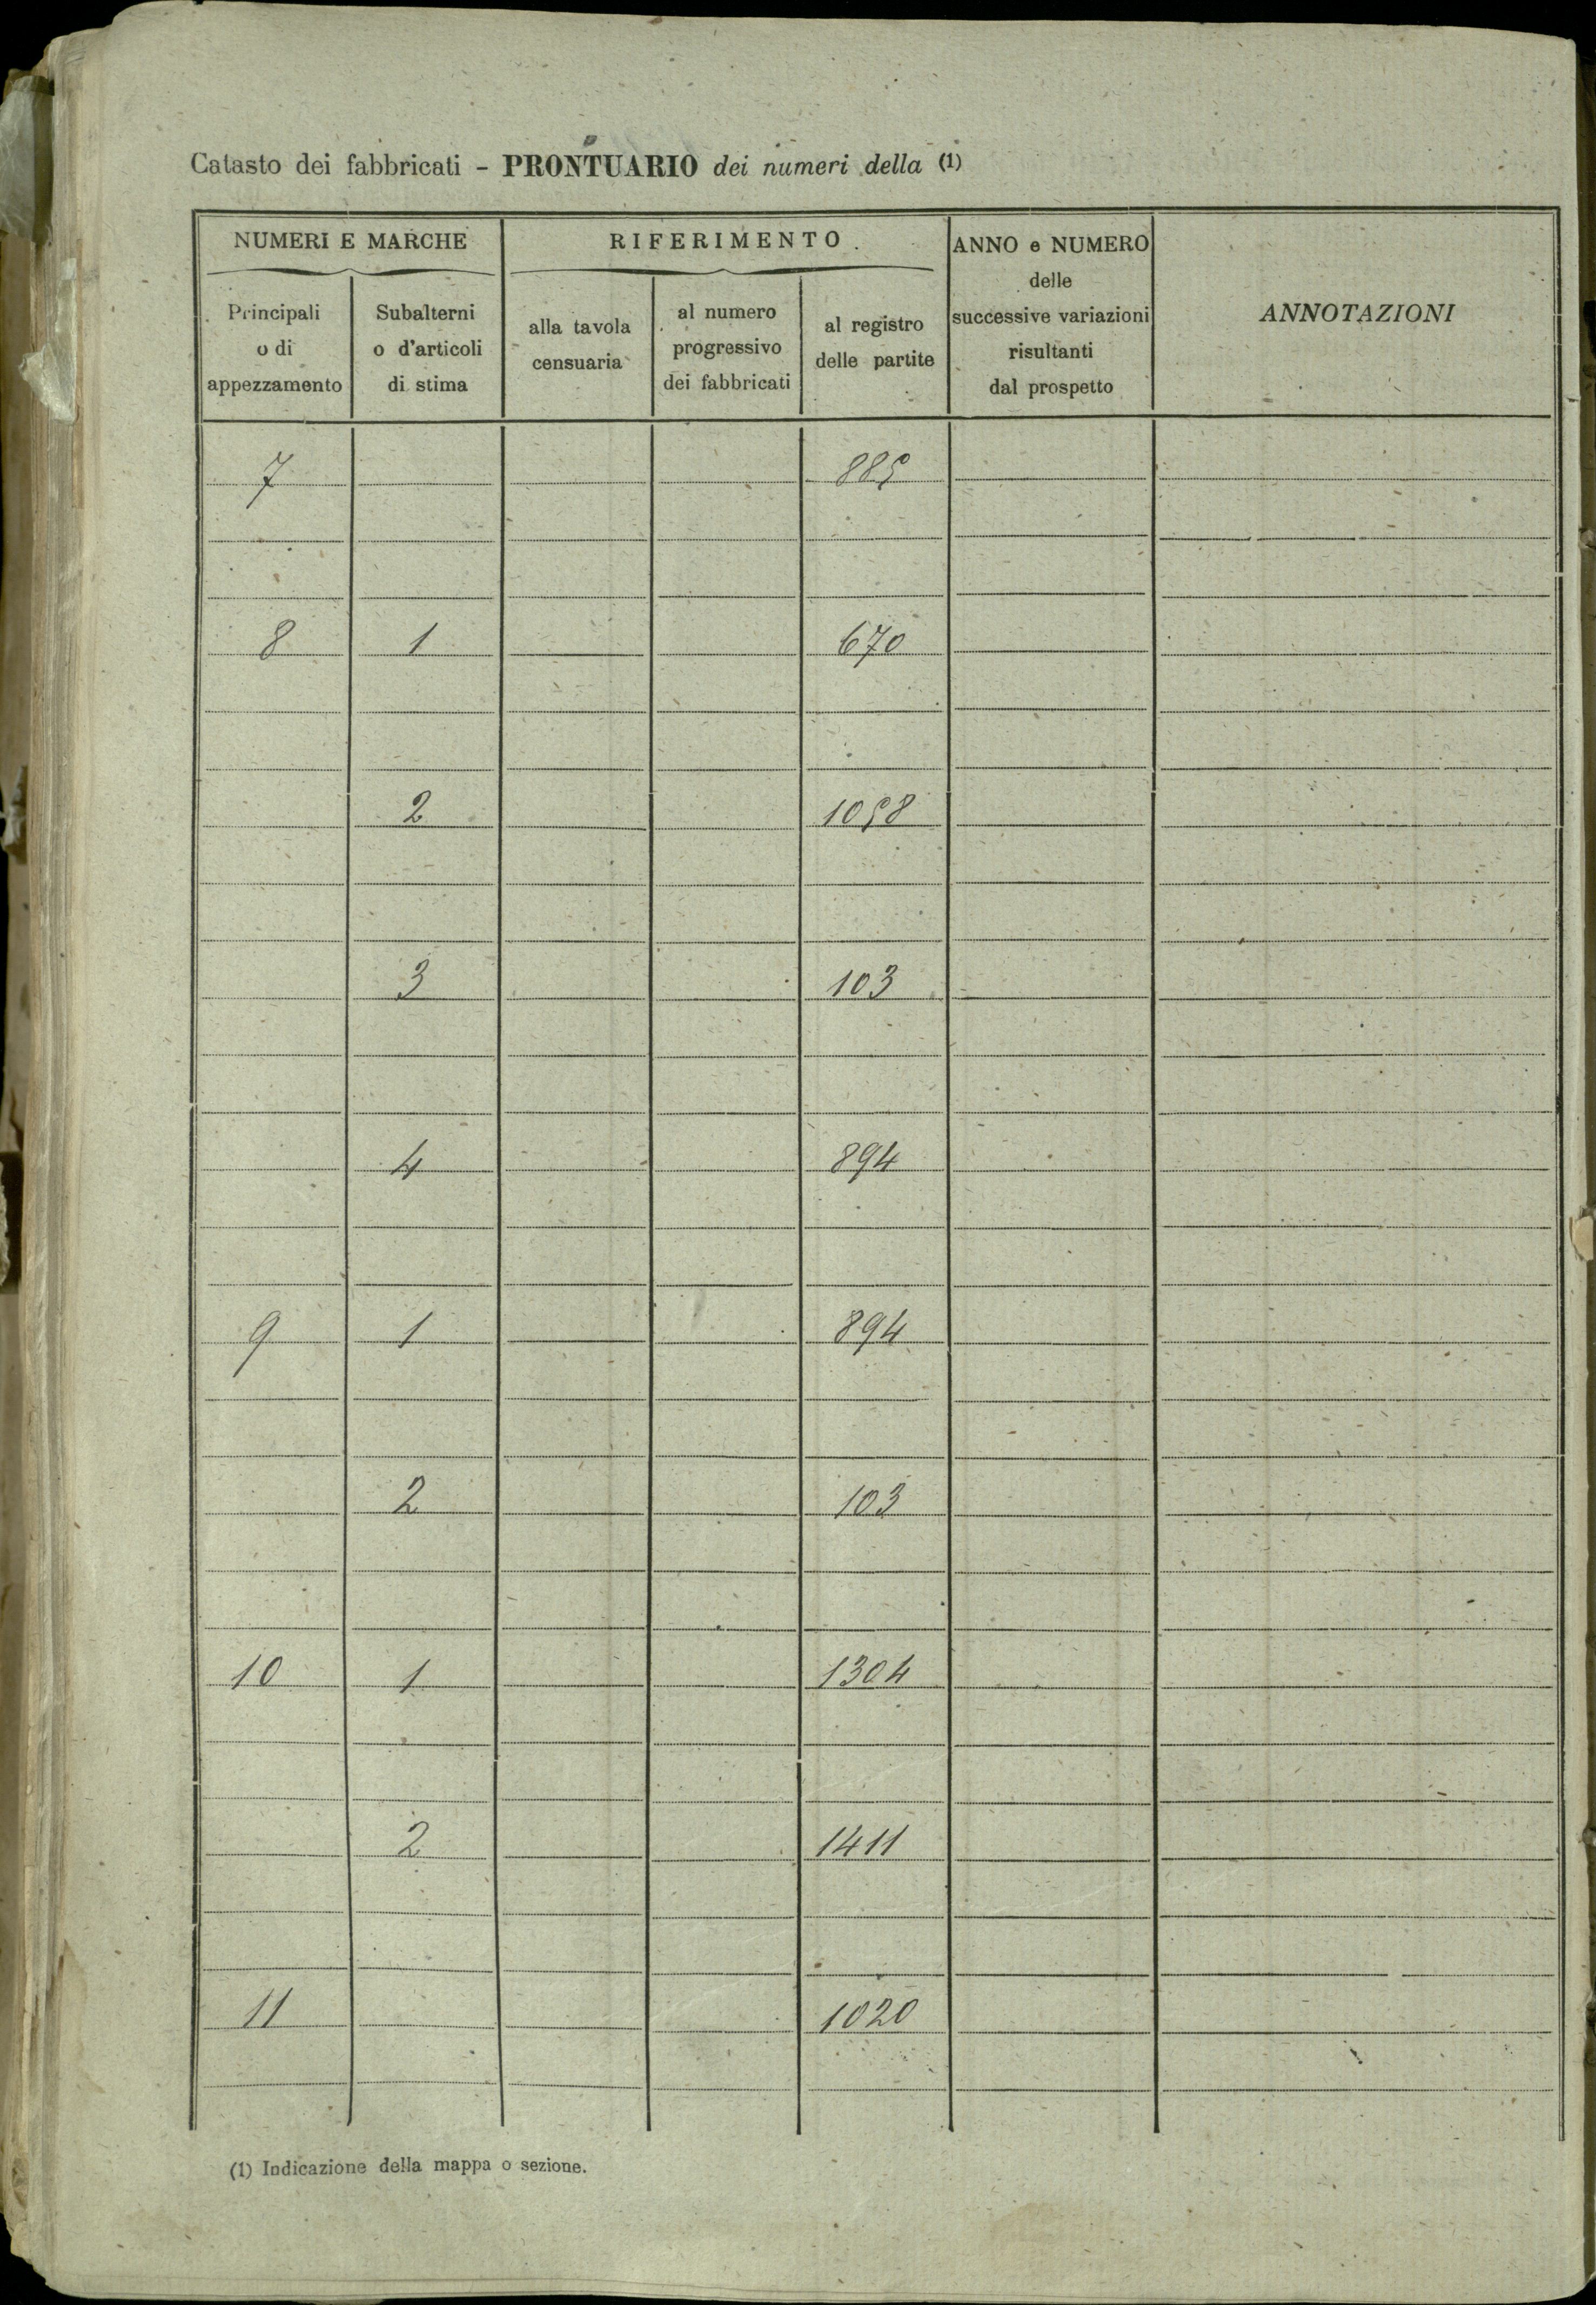 Catasto dei fabbricati - PRONTUARIO dei numeri della (1)
NUMERI E MARCHE
RIFERIMENTO
ANNO e NUMERO
delle
successive variazioni
risultanti
dal prospetto
ANNOTAZIONI
Principali
o di
appezzamento
Subalterni
o d'articoli
di stima
alla tavola
censuaria
al numero
progressivo
dei fabbricati
al registro
delle partite
7 885
8 1 670
2 1058
3 103
4 894
9 1 894
2 103
10 1 1304
2 1411
11 1020
(1) Indicazione della mappa o sezione.